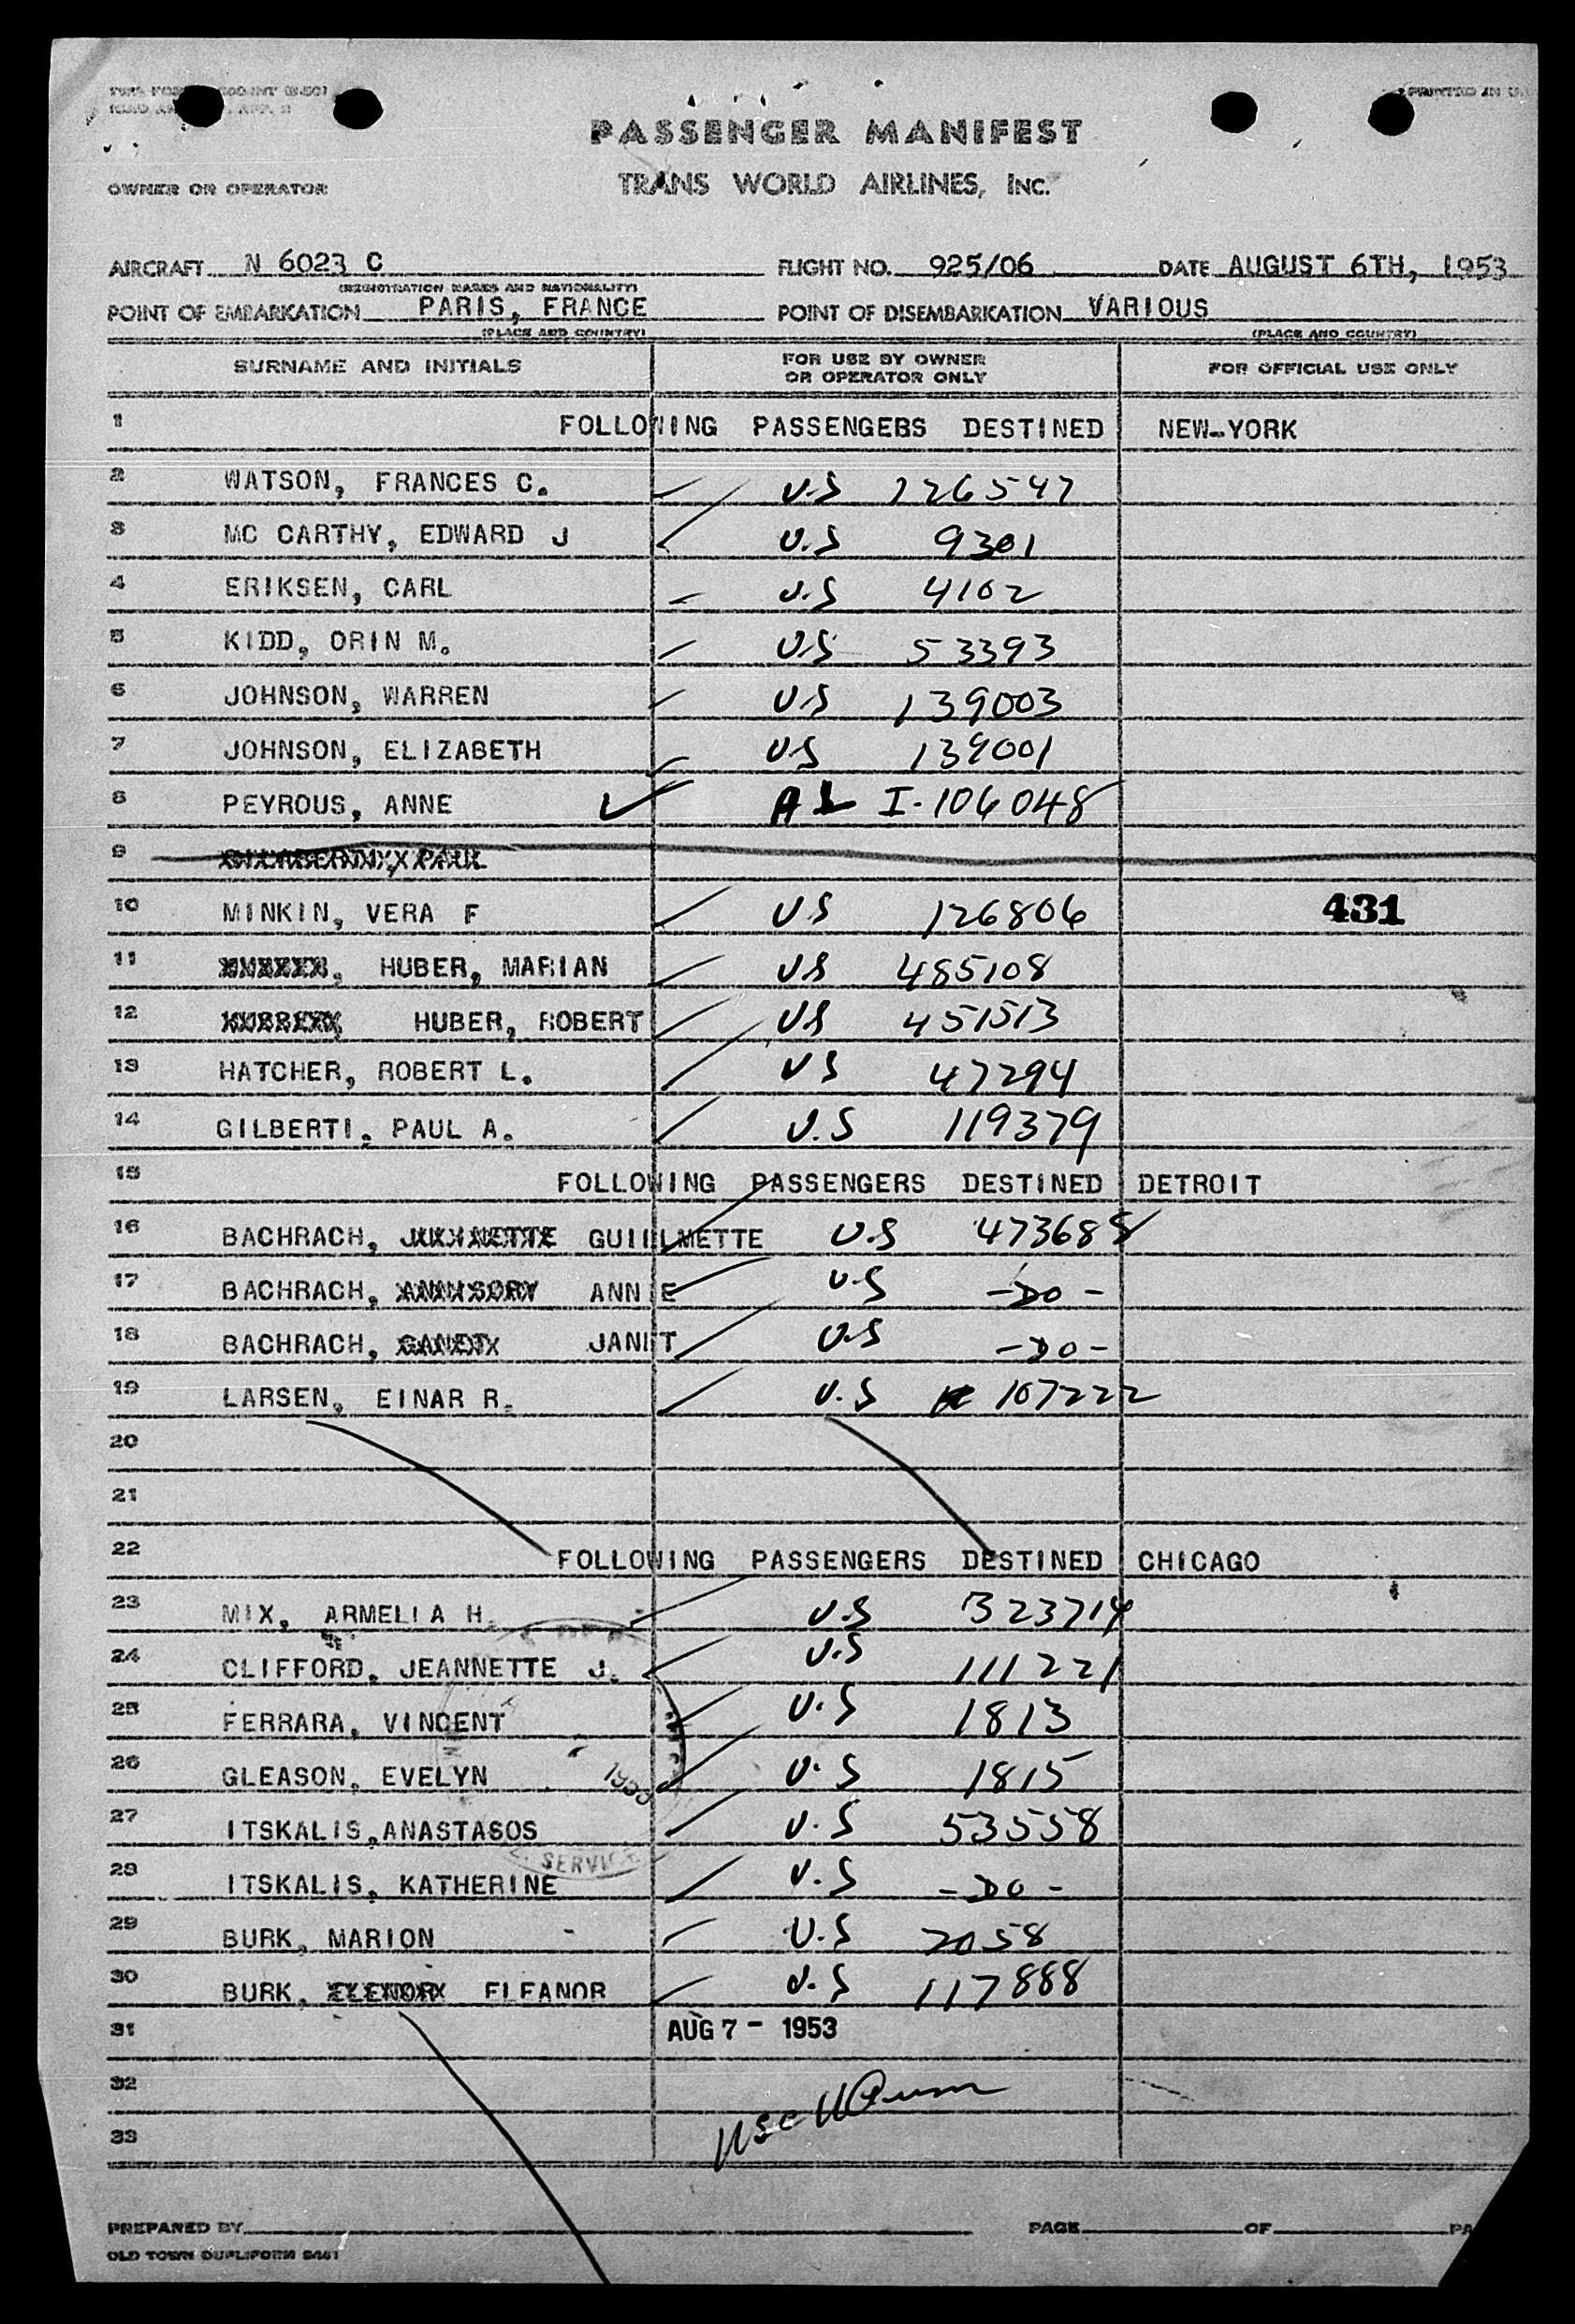 PRINTED IN U.
PASSENGER MANIFEST
OWNER OR OPERATOR TRANS WORLD AIRLINES, INC.
AIRCRAFT N 6023 C FLIGHT NO. 925/06 DATE AUGUST 6TH, 1953
(REGISTRATION MARKS AND NATIONALITY)
POINT OF EMBARKATION PARIS, FRANCE POINT OF DISEMBARKATION VARIOUS
(PLACE AND COUNTRY) (PLACE AND COUNTRY)
SURNAME AND INITIALS FOR USE BY OWNER OR OPERATOR ONLY FOR OFFICIAL USE ONLY
1 FOLLOWING PASSENGEBS DESTINED NEW-YORK
2 WATSON, FRANCES C. U.S 226547
3 MC CARTHY, EDWARD J U.S 9301
4 ERIKSEN, CARL U.S 4102
5 KIDD, ORIN M. U.S 53393
6 JOHNSON, WARREN U.S 139003
7 JOHNSON, ELIZABETH U.S 139001
8 PEYROUS, ANNE I-106048
9
10 MINKIN, VERA F US 126806 431
11 HUBER, MARIAN US 485108
12 HUBER, ROBERT US 451513
13 HATCHER, ROBERT L. US 47294
14 GILBERTI. PAUL A. U.S 119379
15 FOLLOWING PASSENGERS DESTINED DETROIT
16 BACHRACH, GUIILMETTE U.S 473688
17 BACHRACH, ANNIE U.S -DO-
18 BACHRACH, JANET U.S -DO-
19 LARSEN, EINAR R. U.S 107222
20
21
22 FOLLOWING PASSENGERS DESTINED CHICAGO
23 MIX, ARMELIA H. U.S 323714
24 CLIFFORD, JEANNETTE J. U.S 111221
25 FERRARA, VINCENT U.S 1813
26 GLEASON, EVELYN U.S 1815
1953
27 ITSKALIS,ANASTASOS U.S 53558
SERVICE
28 ITSKALIS, KATHERINE U.S -DO-
29 BURK, MARION U.S 2058
30 BURK, ELEANOR U.S 117888
31 AUG 7 - 1953
32
33
PREPARED BY PAGE OF PA
OLD TOWN DUPLIFORM 5461